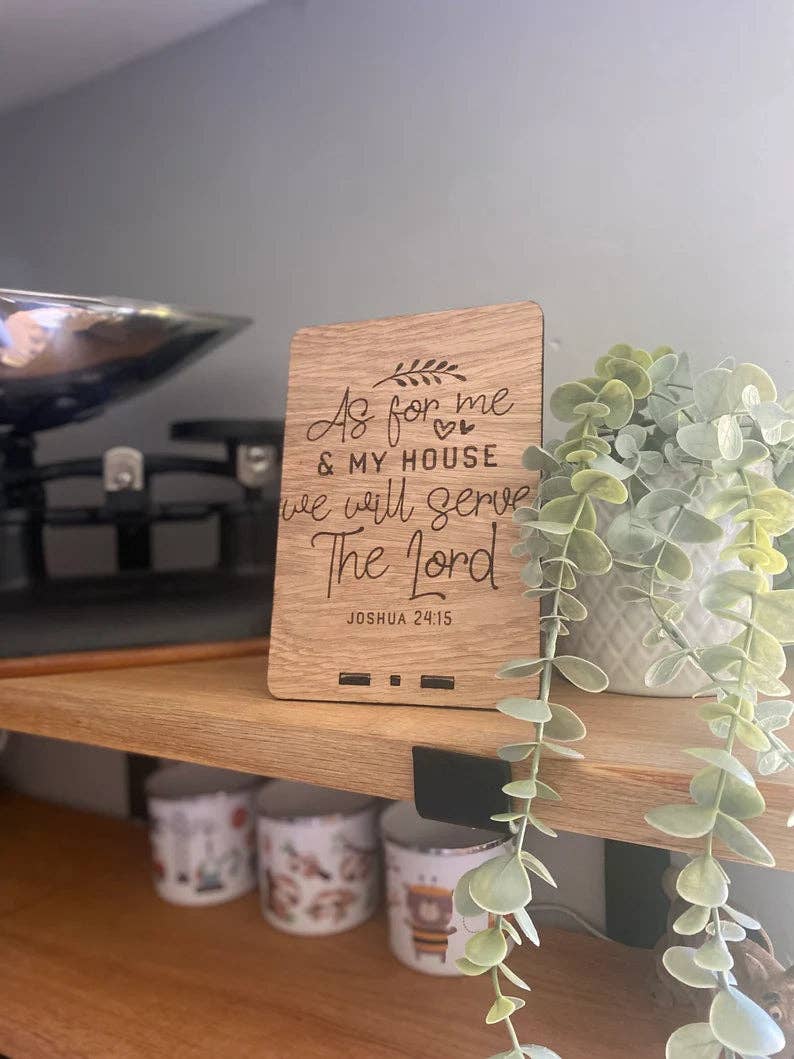 As for me
& MY HOUSE
we will serve
The Lord
JOSHUA 24:15